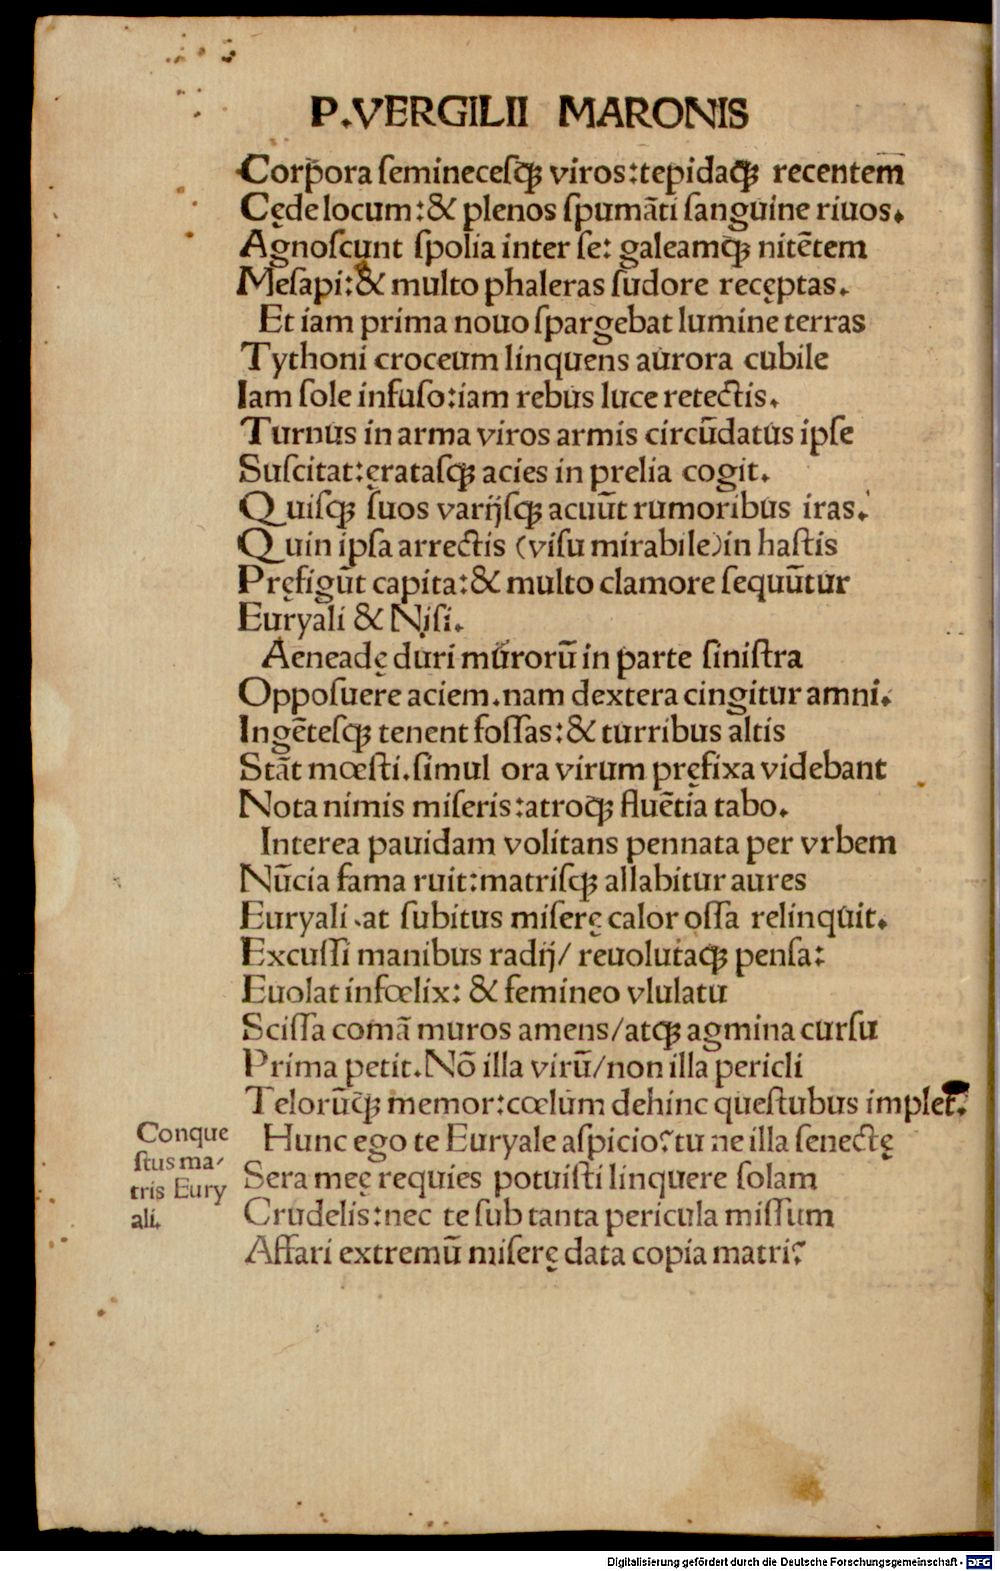 P.VERGILII MARONIS
Corꝑora ſemineceſqꝫ viros:tepidaqꝫ recentem̄
Cęde locum:& plenos ſpumāti ſanguine riuos.
Agnoſcunt ſpolia inter ſe: galeamqꝫ nitētem
Meſapi:& multo phaleras ſudore recęptas.
Et iam prima nouo ſpargebat lumine terras
Tythoni croceum linquens aurora cubile
Iam ſole infuſo:iam rebus luce retectis.
Turnus in arma viros armis circūdatus ipſe
Suſcitat:ęrataſqꝫ acies in prelia cogit.
Quiſqꝫ ſuos varijſqꝫ acuūt rumoribus iras.
Quin ipſa arrectis (viſu mirabile)in haſtis
Pręfigūt capita:& multo clamore ſequūtur
Euryali & Niſi.
Aeneadę duri murorū in parte ſiniſtra
Oppoſuere aciem.nam dextera cingitur amni.
Ingēteſqꝫ tenent foſſas:& turribus altis
Stāt mœſti.ſimul ora virum pręfixa videbant
Nota nimis miſeris:atroqꝫ fluētia tabo.
Interea pauidam volitans pennata per vrbem
Nūcia fama ruit:matriſqꝫ allabitur aures
Euryali.at ſubitus miſerę calor oſſa relinquit.
Excuſſi manibus radij/ reuolutaqꝫ penſa:
Euolat infœlix: & femineo vlulatu
Sciſſa comā muros amens/atqꝫ agmina curſu
Prima petit.Nō illa virū/non illa pericli
Telorūqꝫ memor:cœlum dehinc queſtubus implet.
Conque
ſtus ma⸗
tris Eury
ali.
Hunc ego te Euryale aſpicio?tu ne illa ſenectę
Sera meę requies potuiſti linquere ſolam
Crudelis:nec te ſub tanta pericula miſſum
Affari extremū miſerę data copia matri?
Digitalisierung gefördert durch die Deutsche Forschungsgemeinschaft - DFG